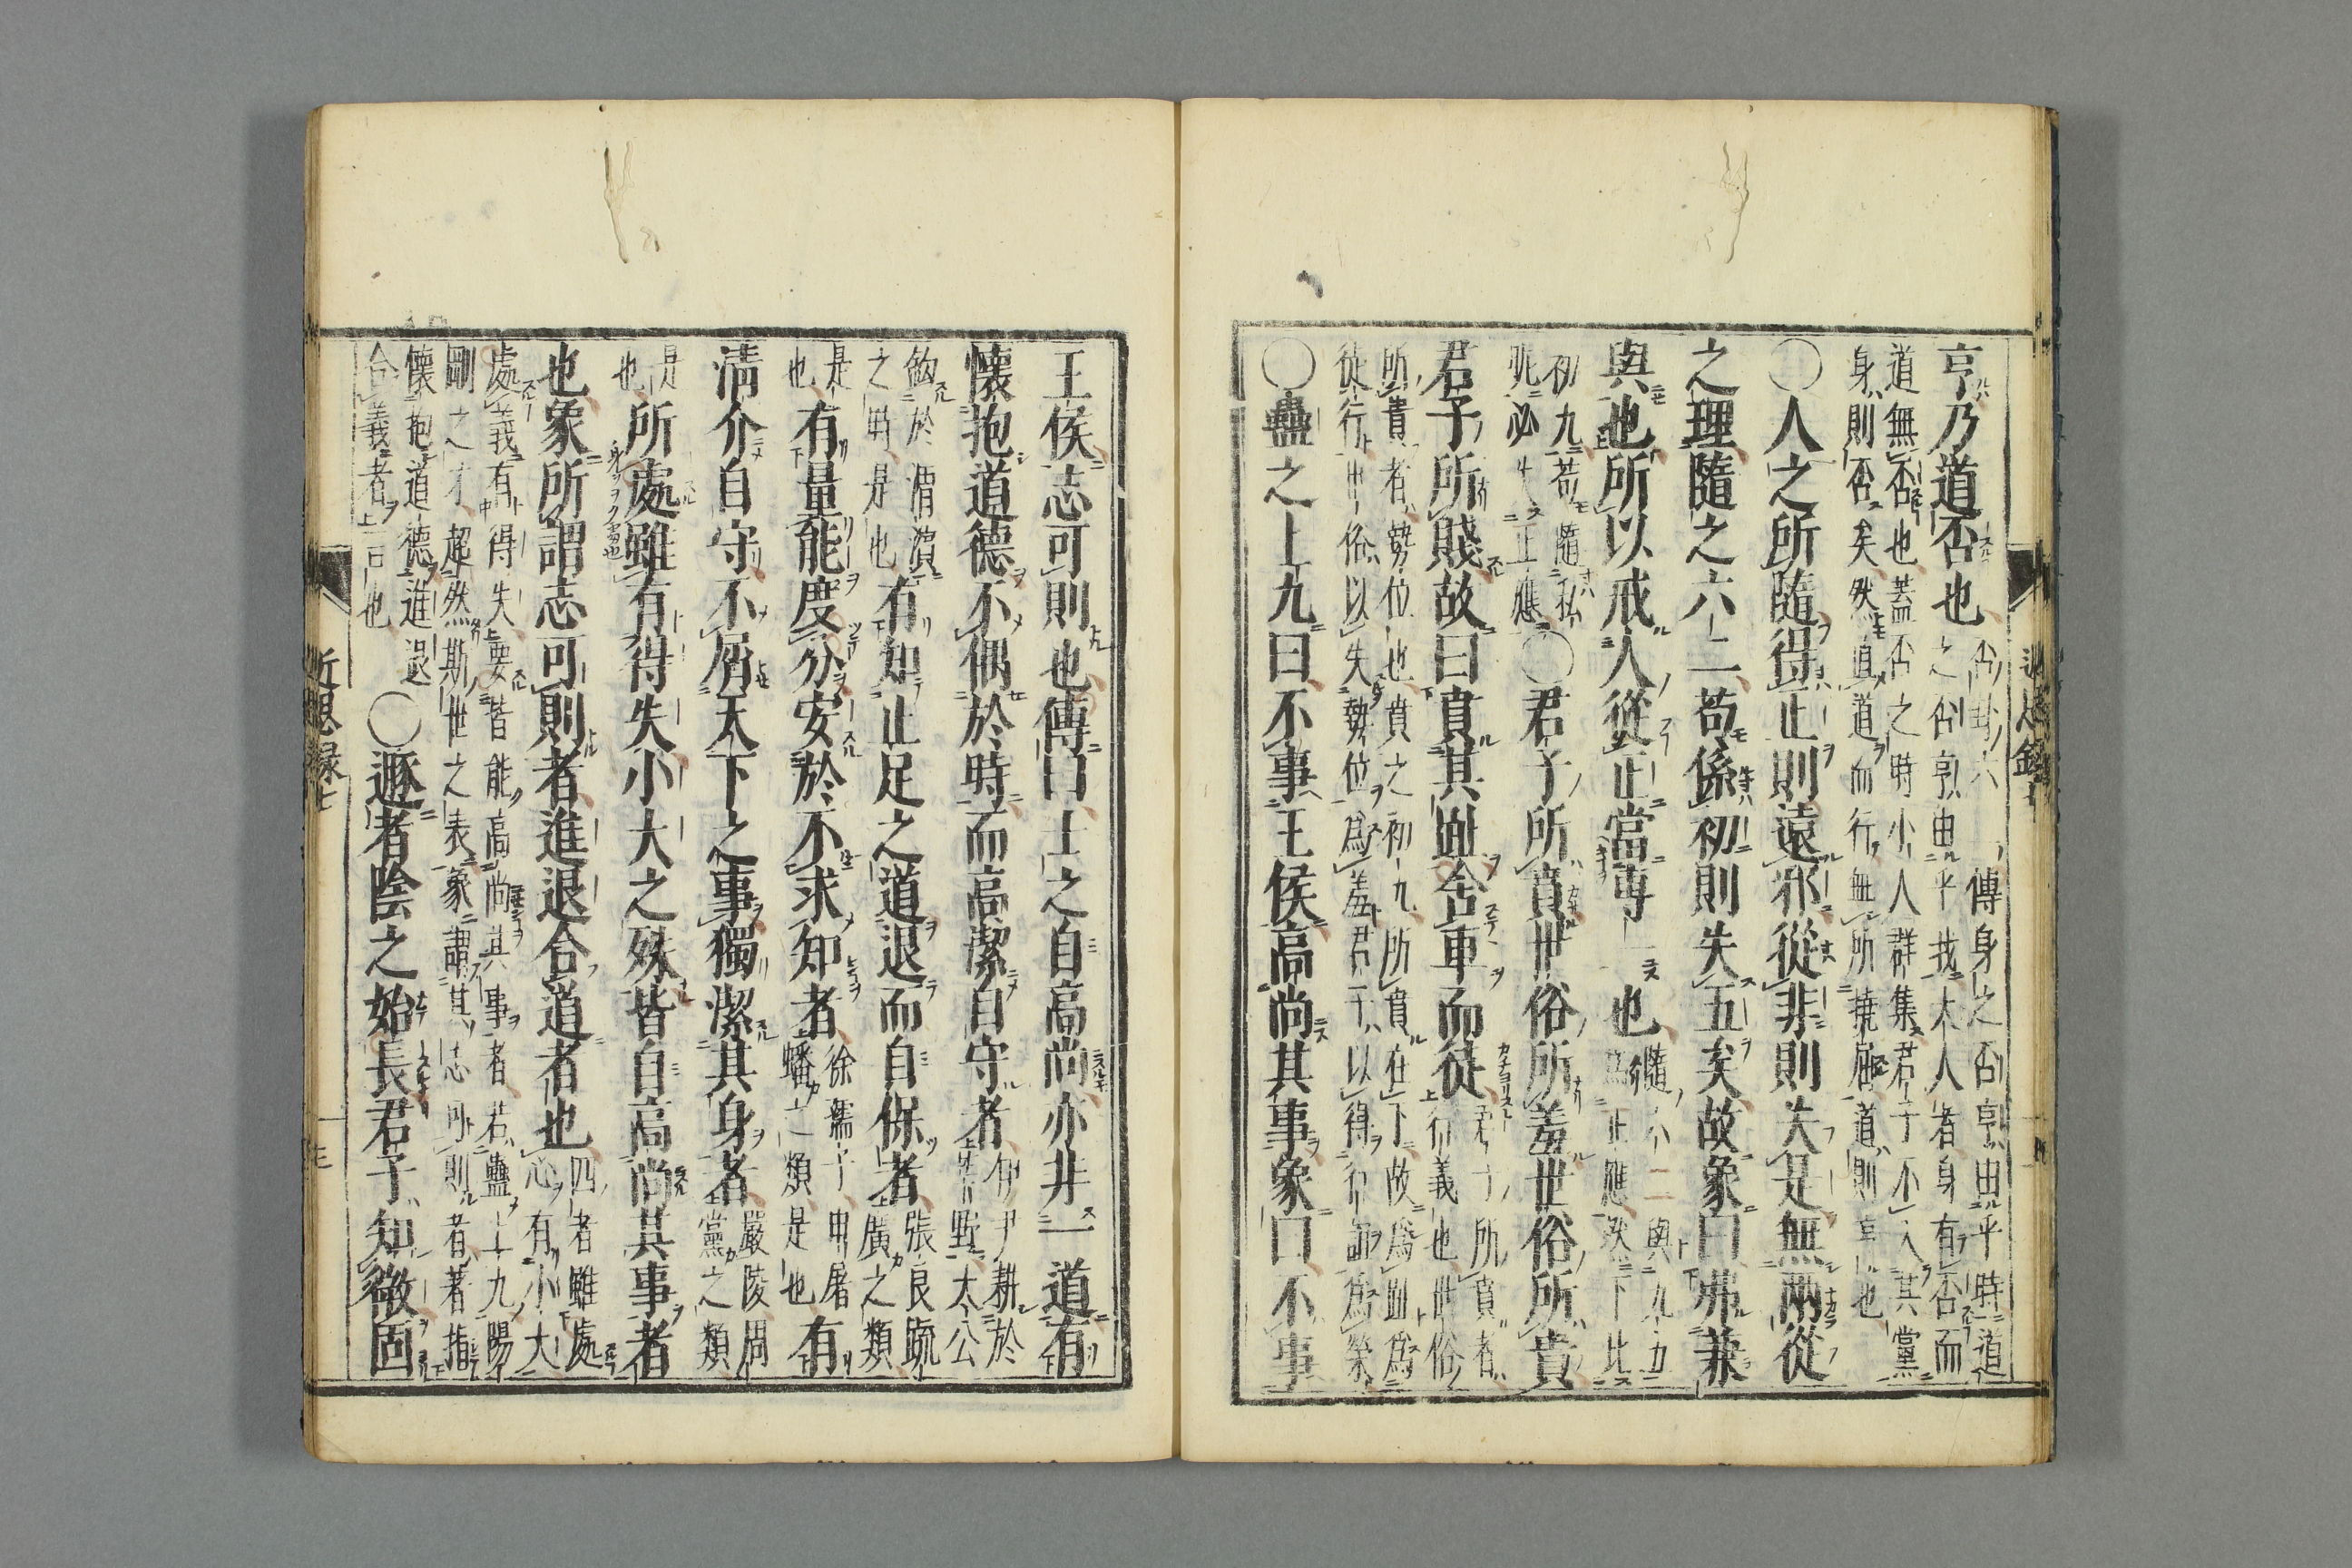 亨乃道否也否卦六二傳身之否亨由乎時道之否亨由乎我大人者身有否而
道無否也蓋否之時小人群集君子不入其黨身則否矣然直道而行無所撓屈道則亨也
〇人之所隨得正則遠邪從非則失是無兩從
之理隨之六二苟係初則失五矣故象曰弗兼
與也所以戒人從正當專一也隨六二與九五爲正應然下比
初九苟隨私昵必失正應〇君子所賁世俗所羞世俗所貴
君子所賤故曰賁其趾舍車而徒君子所賁者行義也世俗
所貴者勢位也賁之初九所賁在下故爲趾爲徒行世俗以失勢位爲羞君子以得行義爲榮
〇蠱之上九曰不事王侯高尚其事象曰不事
王侯志可則也傳曰士之自高尚亦非一道有
懷抱道德不偶於時而高潔自守者伊尹耕於莘野太公
釣於渭濱之時是也有知止足之道退而自保者張良疏廣之類
是也有量能度分安於不求知者徐孺子申屠蟠之類是也有
清介自守不屑天下之事獨潔其身者嚴陵周黨之類
是也所處雖有得失小大之殊皆自高尚其事者
也象所謂志可則者進退合道者也四者雖處心有小大
處義有得失要皆能高尚其事者若蠱上九陽剛之才超然斯世之表象謂其志可則者著指
懷抱道德進退合義者言也〇遯者陰之始長君子知微固
近思録七